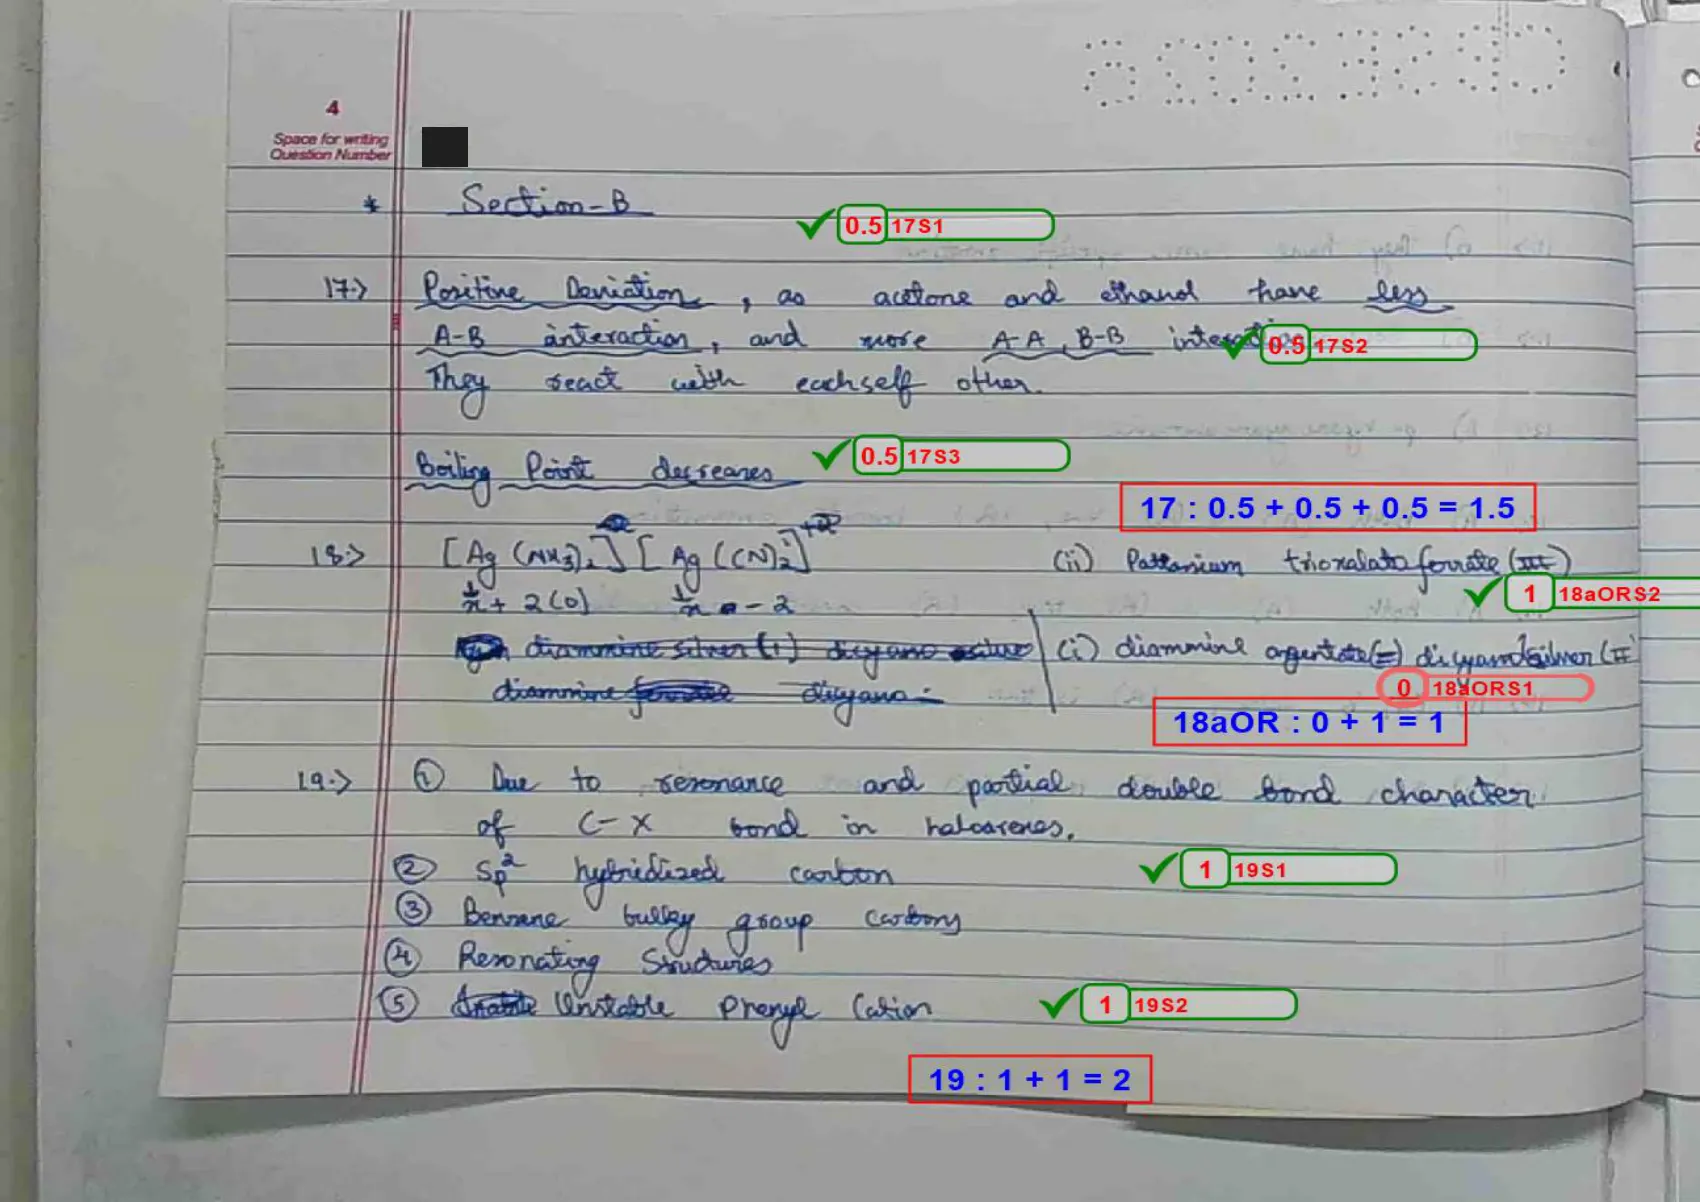 4
Space for writing
Question Number
* Section-B
✓ 0.5 17S1
17.> Positive Deviation, as acetone and ethanol have less
A-B interaction, and more A-A, B-B
✓ 0.5 17S2
They react with eachself other.
Boiling Point decreases
✓ 0.5 17S3
17 : 0.5 + 0.5 + 0.5 = 1.5
18.> [Ag (NH3)2] [Ag (CN)2]
x + 2(0) x - 2
diammine silver (1) dicyano
diammine dicyano
(ii) Pottasium trioxalato ferrate (III)
✓ 1 18aORS2
(i) diammine argentate(I) silver (II
0 18aORS1
18aOR : 0 + 1 = 1
19.> ① Due to resonance and partial double bond character
of C-X bond in haloarenes.
② Sp2 hybridized carbon
✓ 1 19S1
③ Benzene bulky group
④ Resonating Structures
⑤ Unstable Phenyl Cation
✓ 1 19S2
19 : 1 + 1 = 2